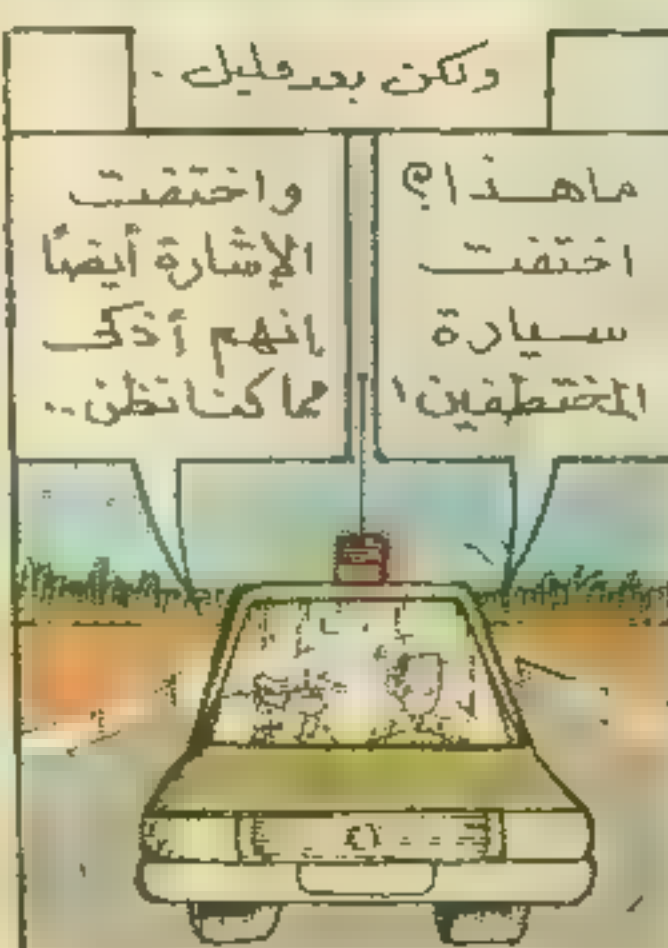 ولكن بعد قليل .
ما هذا؟
اختفت
سيارة
المختطفين!
واختفت
الإشارة أيضًا
إنهم أذكى
مما كنا نظن ..